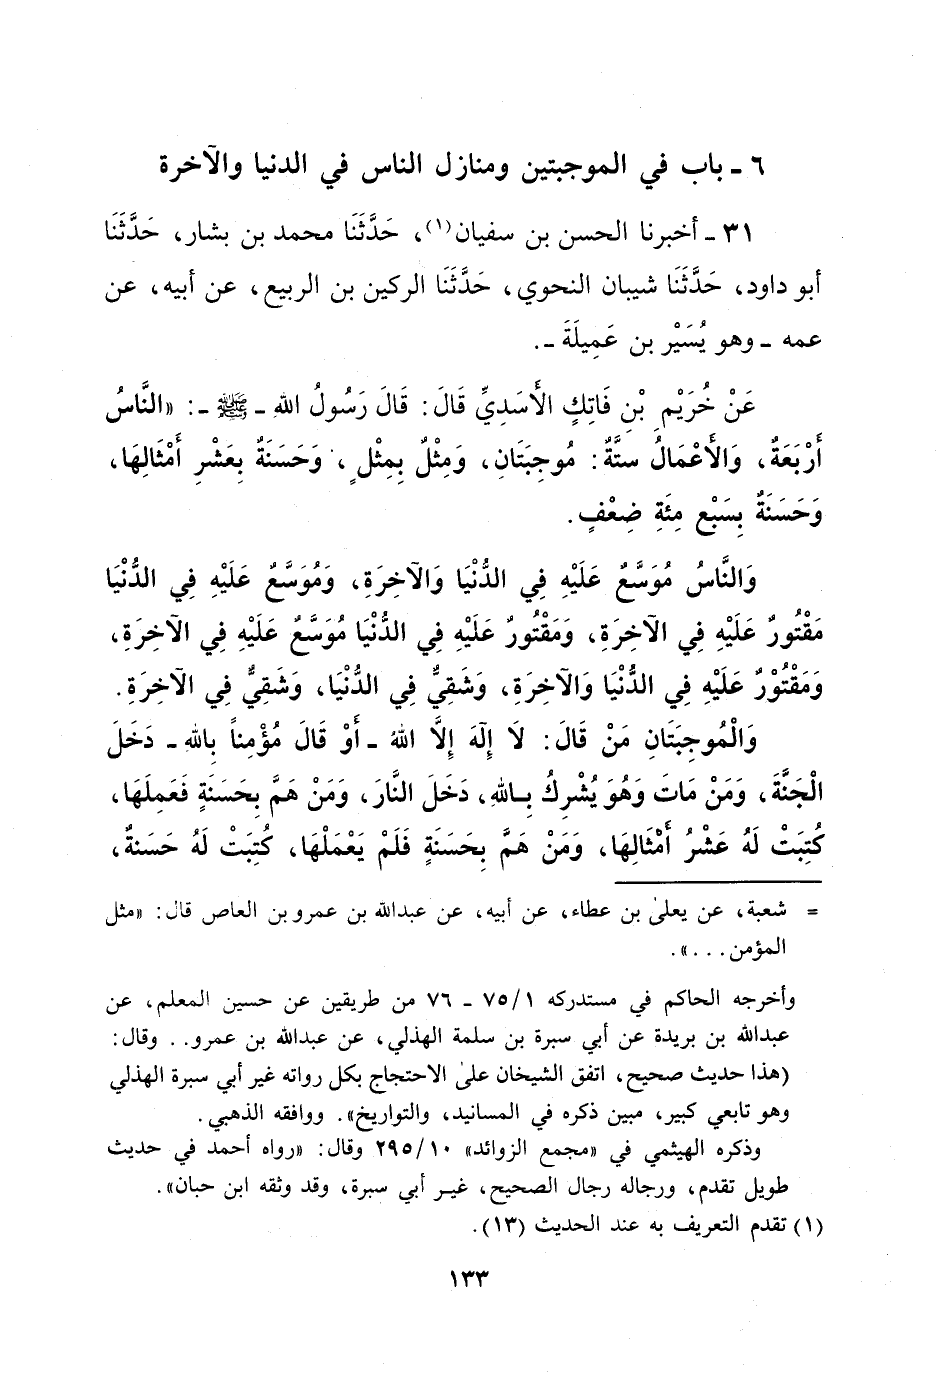 ٦ ـ باب في الموجبتين ومنازل الناس في الدنيا والآخرة
٣١ ـ أخبرنا الحسن بن سفيان(١)، حَدَّثَنَا محمد بن بشار، حَدَّثَنَا
أبو داود، حَدَّثَنَا شيبان النحوي، حَدَّثَنَا الركين بن الربيع، عن أبيه، عن
عمه ـ وهو يُسَيْر بن عَمِيلَةَ ـ.
عَنْ خُرَيْمِ بْنِ فَاتِكٍ الأَسَدِيِّ قَالَ: قَالَ رَسُولُ اللهِ ـ ﷺ ـ: «النَّاسُ
أَرْبَعَةٌ، وَالأَعْمَالُ سِتَّةٌ: مُوجِبَتَانِ، وَمِثْلٌ بِمِثْلٍ، وَحَسَنَةٌ بِعَشْرِ أَمْثَالِهَا،
وَحَسَنَةٌ بِسَبْعِ مِئَةِ ضِعْفٍ.
وَالنَّاسُ مُوَسَّعٌ عَلَيْهِ فِي الدُّنْيَا وَالآخِرَةِ، وَمُوَسَّعٌ عَلَيْهِ فِي الدُّنْيَا
مَقْتُورٌ عَلَيْهِ فِي الآخِرَةِ، وَمَقْتُورٌ عَلَيْهِ فِي الدُّنْيَا مُوَسَّعٌ عَلَيْهِ فِي الآخِرَةِ،
وَمَقْتُوْرٌ عَلَيْهِ فِي الدُّنْيَا وَالآخِرَةِ، وَشَقِيٌّ فِي الدُّنْيَا، وَشَقِيٌّ فِي الآخِرَةِ.
وَالْمُوجِبَتَانِ مَنْ قَالَ: لَا إِلَهَ إِلَّا اللهُ ـ أَوْ قَالَ مُؤْمِناً بِاللهِ ـ دَخَلَ
الْجَنَّةَ، وَمَنْ مَاتَ وَهُوَ يُشْرِكُ بِاللهِ، دَخَلَ النَّارَ، وَمَنْ هَمَّ بِحَسَنَةٍ فَعَمِلَهَا،
كُتِبَتْ لَهُ عَشْرُ أَمْثَالِهَا، وَمَنْ هَمَّ بِحَسَنَةٍ فَلَمْ يَعْمَلْهَا، كُتِبَتْ لَهُ حَسَنَةٌ،
= شعبة، عن يعلىٰ بن عطاء، عن أبيه، عن عبدالله بن عمرو بن العاص قال: «مثل
المؤمن...».
وأخرجه الحاكم في مستدركه ١/٧٥ ـ ٧٦ من طريقين عن حسين المعلم، عن
عبدالله بن بريدة عن أبي سبرة بن سلمة الهذلي، عن عبدالله بن عمرو.. وقال:
(هذا حديث صحيح، اتفق الشيخان علىٰ الاحتجاج بكل رواته غير أبي سبرة الهذلي
وهو تابعي كبير، مبين ذكره في المسانيد، والتواريخ». ووافقه الذهبي.
وذكره الهيثمي في «مجمع الزوائد» ١٠/٢٩٥ وقال: «رواه أحمد في حديث
طويل تقدم، ورجاله رجال الصحيح، غير أبي سبرة، وقد وثقه ابن حبان».
(١) تقدم التعريف به عند الحديث (١٣).
١٣٣